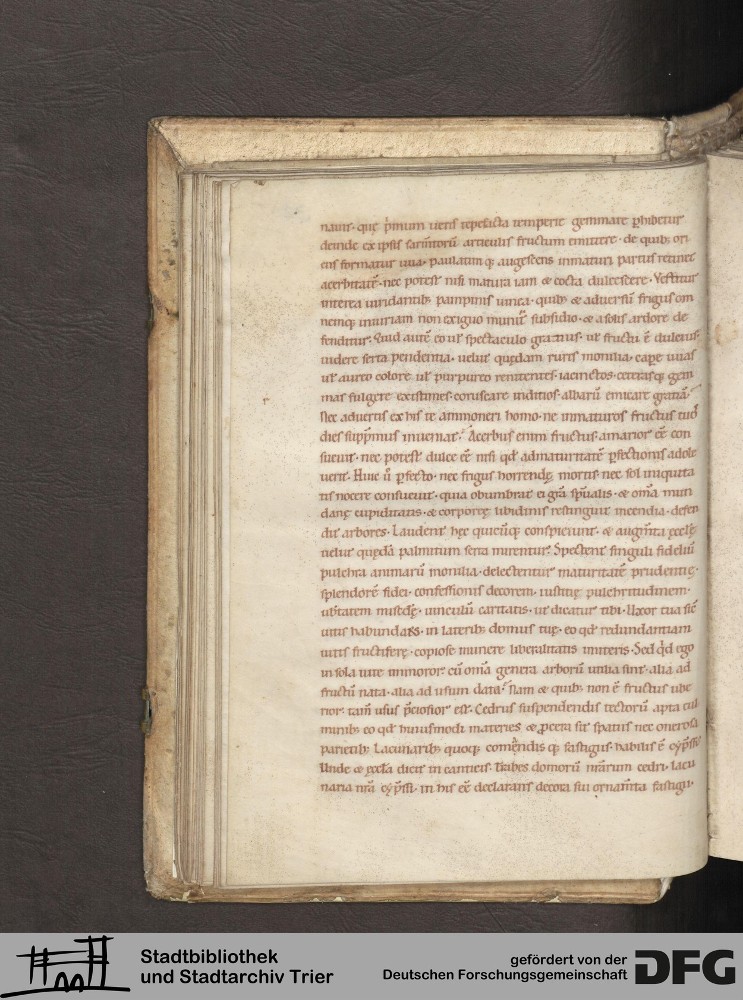 nauit· quę p̍mum ueris tepefacta temperie gemmare ꝑhibetur
deinde ex ipsis sarm̄torū articulis fructum emittere· de quib; ori
ens formatur uua· paulatimq; augescens inmaturi partus retinet
acerbitatē· nec potest nisi matura iam & cocta dulcescere· Vestitur
interea uiridantib; pampinis uinea· quib; & aduersū frigus om
nemq; iniuriam non exiguo munit̄ subsidio· & a solis ardore de
fenditur· Quid autē eo uł spectaculo gratius· uł fructu ē dulcius·
uidere serta pendentia· uelut quędam ruris monilia· carpe uuas
uł aureo colore uł purpureo renitentes· iacinctos· ceterasq; gem
mas fulgere existimes· coruscare indicos· albarū emicare gratiā·
Nec aduertis ex his te ammoneri homo· ne inmaturos fructus tuos
dies supp̄mus inueniat· Acerbus enim fructus amarior eē con
sueuit· nec potest dulce eē nisi qd̄ ad maturitatē ꝑfectionis adole
uerit· Huic ū ꝑfecto· nec frigus horrendę mortis· nec sol iniquita
tis nocere consueuit· quia obumbrat ei grā sp̄ualis· & om̄a mun
danę cupiditatis· & corporeę libidinis restinguit incendia· defen
dit ardores· Laudent hęc quicūq; conspiciunt· & augm̄ta ęccłę
uelut quędā palmitum serta mirentur· Spectent singuli fideliū
pulchra animarū monilia· delectentur maturitatē prudentię·
splendorē fidei· confessionis decorem· iustitię pulchritudinem·
ub̄tatem misc̄dę· uinculū caritatis· ut dicatur tibi· Uxor tua sic̄
uitis habundans· in laterib; domus tuę· eo qd̄ redundantiam
uitis fructiferę· copioso munere liberalitatis imiteris· Sed qd̄ ego
in sola uite inmoror· cū om̄a genera arborū utilia sint· alia ad
fructū nata· alia ad usum data· Nam & quib; non ē fructus ube
rior· tam̄ usus p̄ciosior est· Cedrus suspendendis tectorū apta cul
minib; eo qd̄ huiusmodi materies & ꝓcera sit spatiis nec onerosa
parietib; Lacunarib; quoq; comendis q; fastigiis· habilis ē cyp̄ssus
Unde & ęccła dicit in canticis· Trabes domorū nr̄arum cedri· lacu
naria nr̄a cyp̄ssi· in his eē declarans decora sui ornam̄ta fastigii·
r
Stadtbibliothek
und Stadtarchiv Trier
gefördert von der
Deutschen Forschungsgemeinschaft
DFG